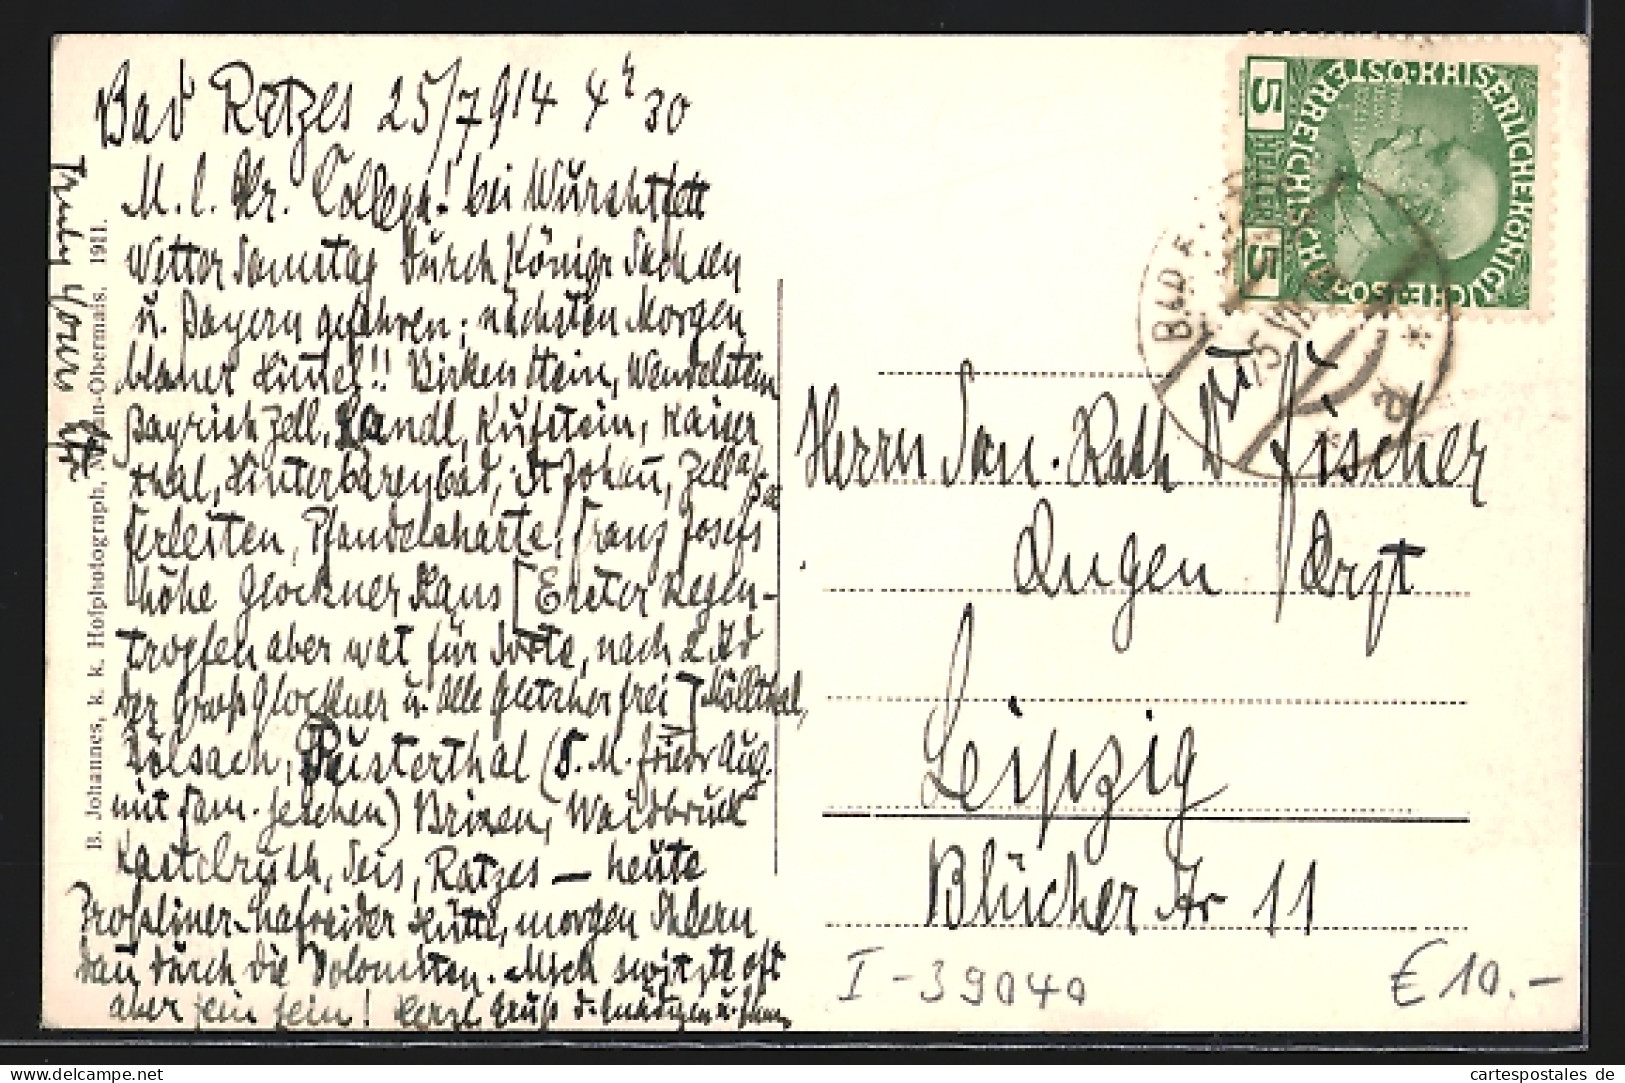 Bad Ratzes 25/7 914 4 h 30
M. l. Hr. Collega! bei
Wetter Samstag durch Königr Sachsen
u. Bayern gefahren; nächsten Morgen
blauer Himel!! Birkenstein, Wendelstein
Bayrisch Zell, Landl, Kufstein, Kaiser
thal, Hinterbärenbad, St Johan, Zell a/See
Ferleiten, Pfandelscharte, Franz Josefs
höhe Glockner Haus [Erster Regen-
tropfen aber wat für Sorte, nach 2 Std
der Groß Glockner u. alle Gletscher frei] Möllthal,
Dölsach, Pusterthal (S. M. Friedr Aug.
mit Fam. gesehen) Brixen, Waidbruck
Kastelruth, Seis, Ratzes – heute
Proßliner- Hütte, morgen Schlern
dan durch die Dolomiten. Mich switzt oft
aber fein fein! Herzl Gruß d. Gnädigen u. Ihnen
B. Johannes, k. k. Hofphotograph, Meran-Obermais. 1911.
KAISERLICHE KÖNIGLICHE
ÖSTERREICHISCHE POST
5 HELLER 5
BAD
Herrn San. Rath Dr Fischer
Augen Arzt
Leipzig
Blücher Str 11
I-39040
€ 10.-
cartespostales de
www.delcampe.net